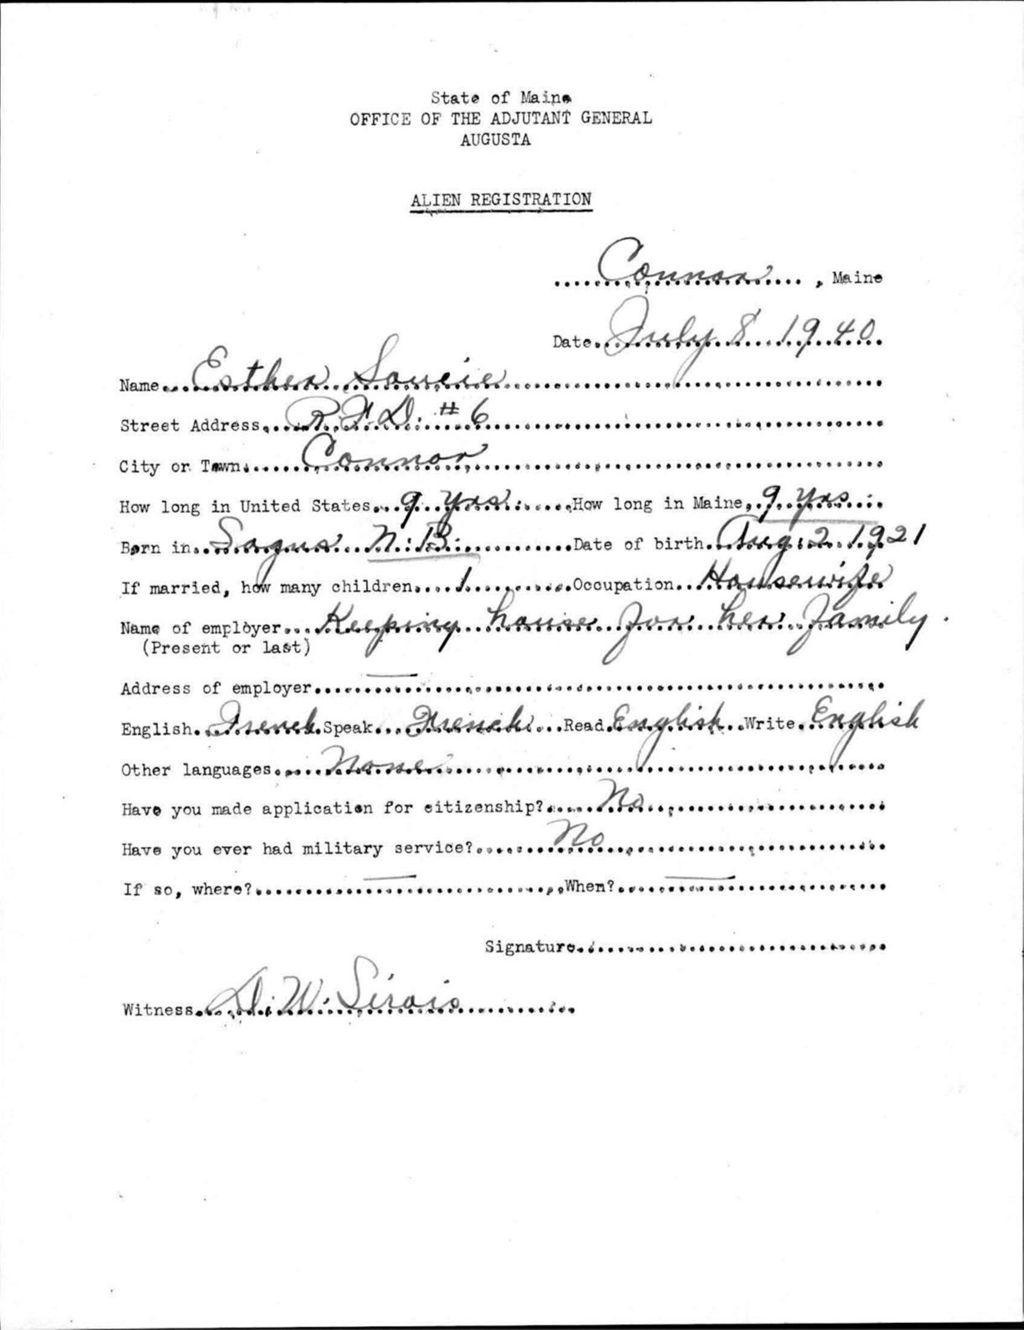 State of Maine
OFFICE OF THE ADJUTANT GENERAL
AUGUSTA
ALIEN REGISTRATION
Connor, Maine
Date July 8 1940
Name Esther Soucie
Street Address R.F.D. #6
City or Town Connor
How long in United States 9 yrs. How long in Maine 9 yrs.
Born in N.B. Date of birth Aug. 2 1921
If married, how many children 1 Occupation Housewife
Name of employer Keeping house for her family.
(Present or last)
Address of employer —
English French Speak French Read English Write English
Other languages None
Have you made application for citizenship? No
Have you ever had military service? No
If so, where? — When? —
Signature
Witness D. W. Sirois